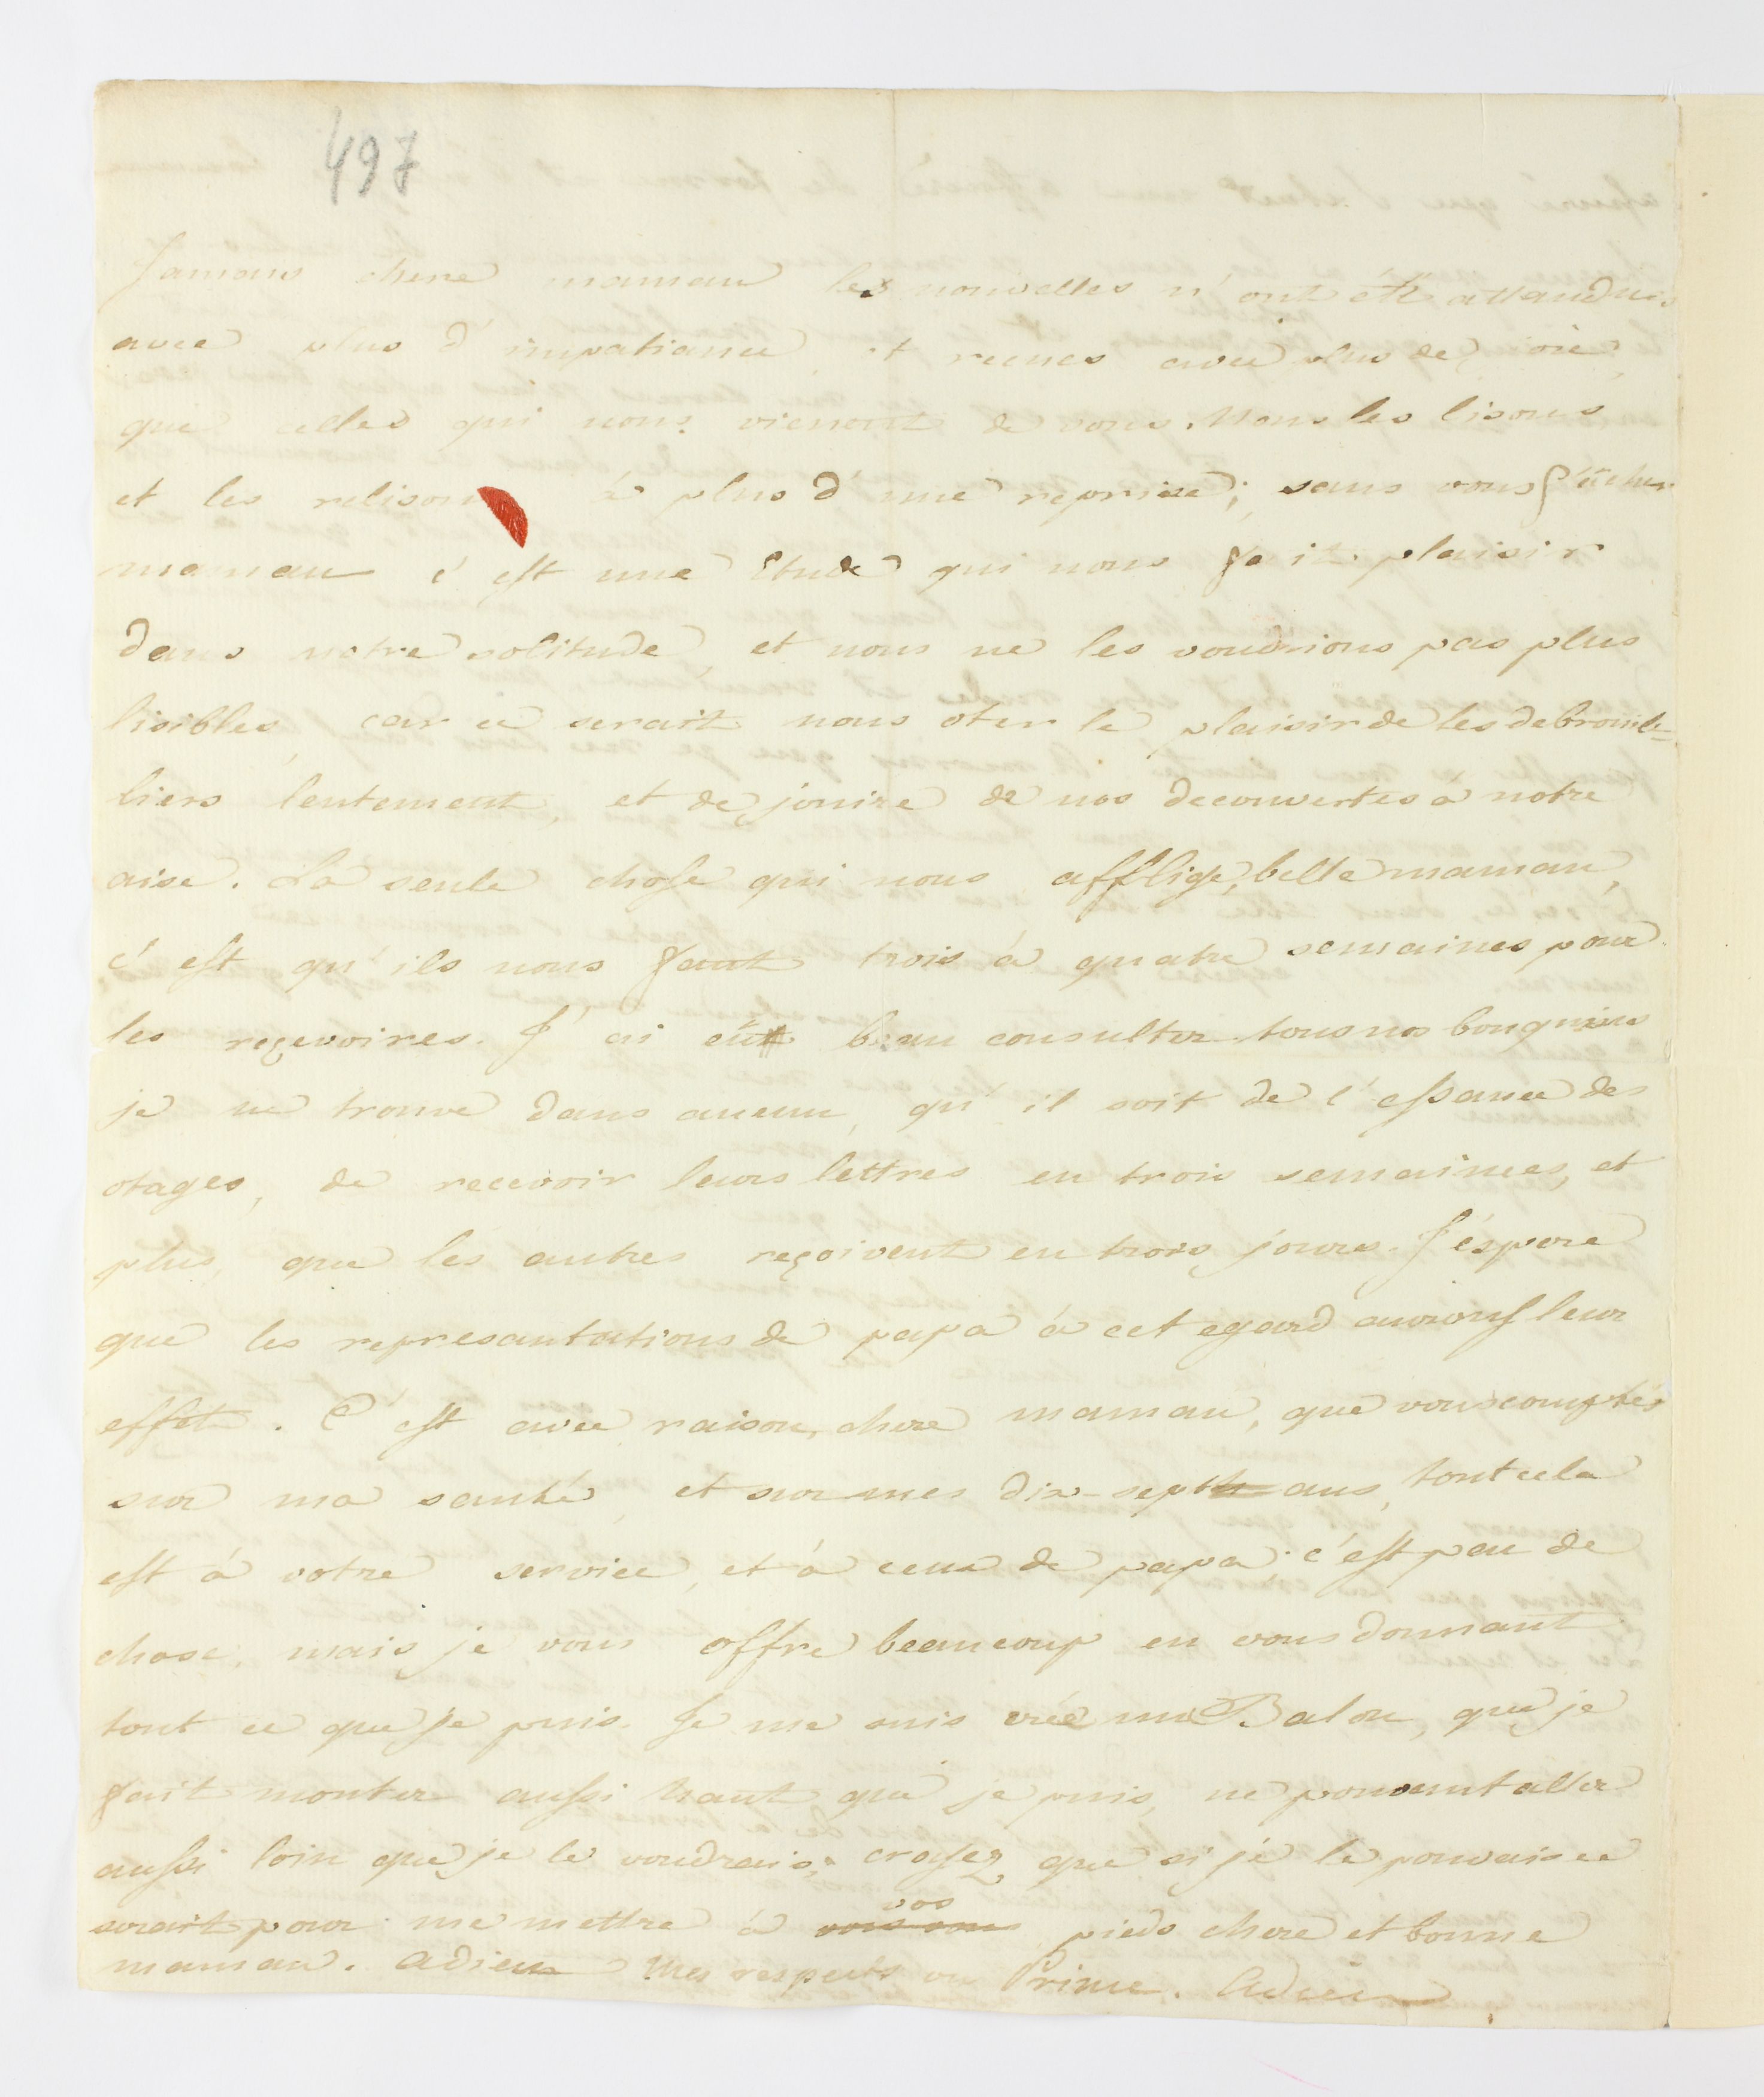 497
Jamais chere maman les nouvelles n'ont été attandues
avec plus d'impatiance et recues avec plus de joie,
que celles qui nous vienent de vous. Nous les lisons
et les relisons à plus d'une reprise; sans vous fâcher
maman c'est une étude qui nous fait plaisir
dans notre solitude, et nous ne les voudrions pas plus
lisibles, car ce serait nous oter le plaisir de les debrouil=
liers lentement, et de jouire de nos decouvertes à notre
aise. La seule chose qui nous afflige, belle maman,
c'est qu'ils nous faut trois à quatre semaines pour
les reçevoires. J'ai eut beau consulter tous nos bouquins
je ne trouve dans aucun, qu'il soit de l'essance des
otages, de recevoir leurs lettres en trois semaines, et
plus, que les autres reçoivent en trois jours. J'éspere
que les represantations de papa à cet egard auront leur
effet. C'est avec raison, chere maman, que vous comptés
sur ma santé, et sur mes dix-sept ans, tout cela
est à votre service, et à ceux de papa; c'est peu de
chose, mais je vous offre beaucoup en vous donnant
tout ce que je puis. Je me suis créé un Balon, que je
fait monter aussi haut que je puis, ne pouvant aller
aussi loin que je le voudrais; croyez que si je le pouvais ce
serait pour me mettre à vos pieds chere et bonne
maman. adieu Mes respects au Prince. Adieu